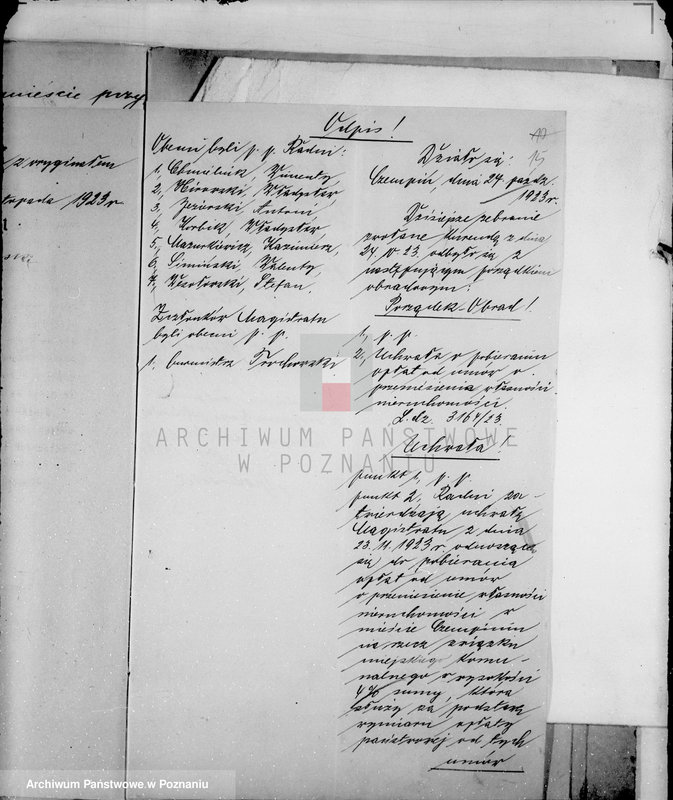 mieście przy
z oryginałem
1923 r.
Odpis!
Obecni byli p. p. Radni:
1, Chmielnik, Wincenty
2, Władysław
3, Jezierski, Antoni
4, Korbik, Władysław
5, Mazurkiewicz, Kazimierz,
6, Simiński, Walenty
7, Wesołowski, Stefan.
Członków Magistratu
byli obecni p. p.
1. burmistrz Trochowski
15
Działo się:
Czempiń, dnia 24. paźdz.
1923 r.
Dzisiejsze zebranie
zwołane kurendą z dnia
24. 10 23. odbyło się z
następującym porządkiem
obradowym:
Porządek-Obrad!
1, p. p.
2, Uchwała o pobieraniu
opłat od umów o
przeniesienia własności
nieruchomości.
L. dz. 3164/23.
Uchwała!
punkt 1, p. p.
punkt 2, Radni za-
twierdzają uchwałę
Magistratu z dnia
23. 11. 1923 r. odnoszącą
się do pobierania
opłat od umów
o przeniesienie własności
nieruchomości w
mieście Czempiniu
na rzecz związku
miejskiego komu-
nalnego w wysokości
4% sumy, która
służy za podstawę
wymiaru opłaty
państwowej od tych
umów
ARCHIWUM PAŃSTWOWE
W POZNANIU
Archiwum Państwowe w Poznaniu